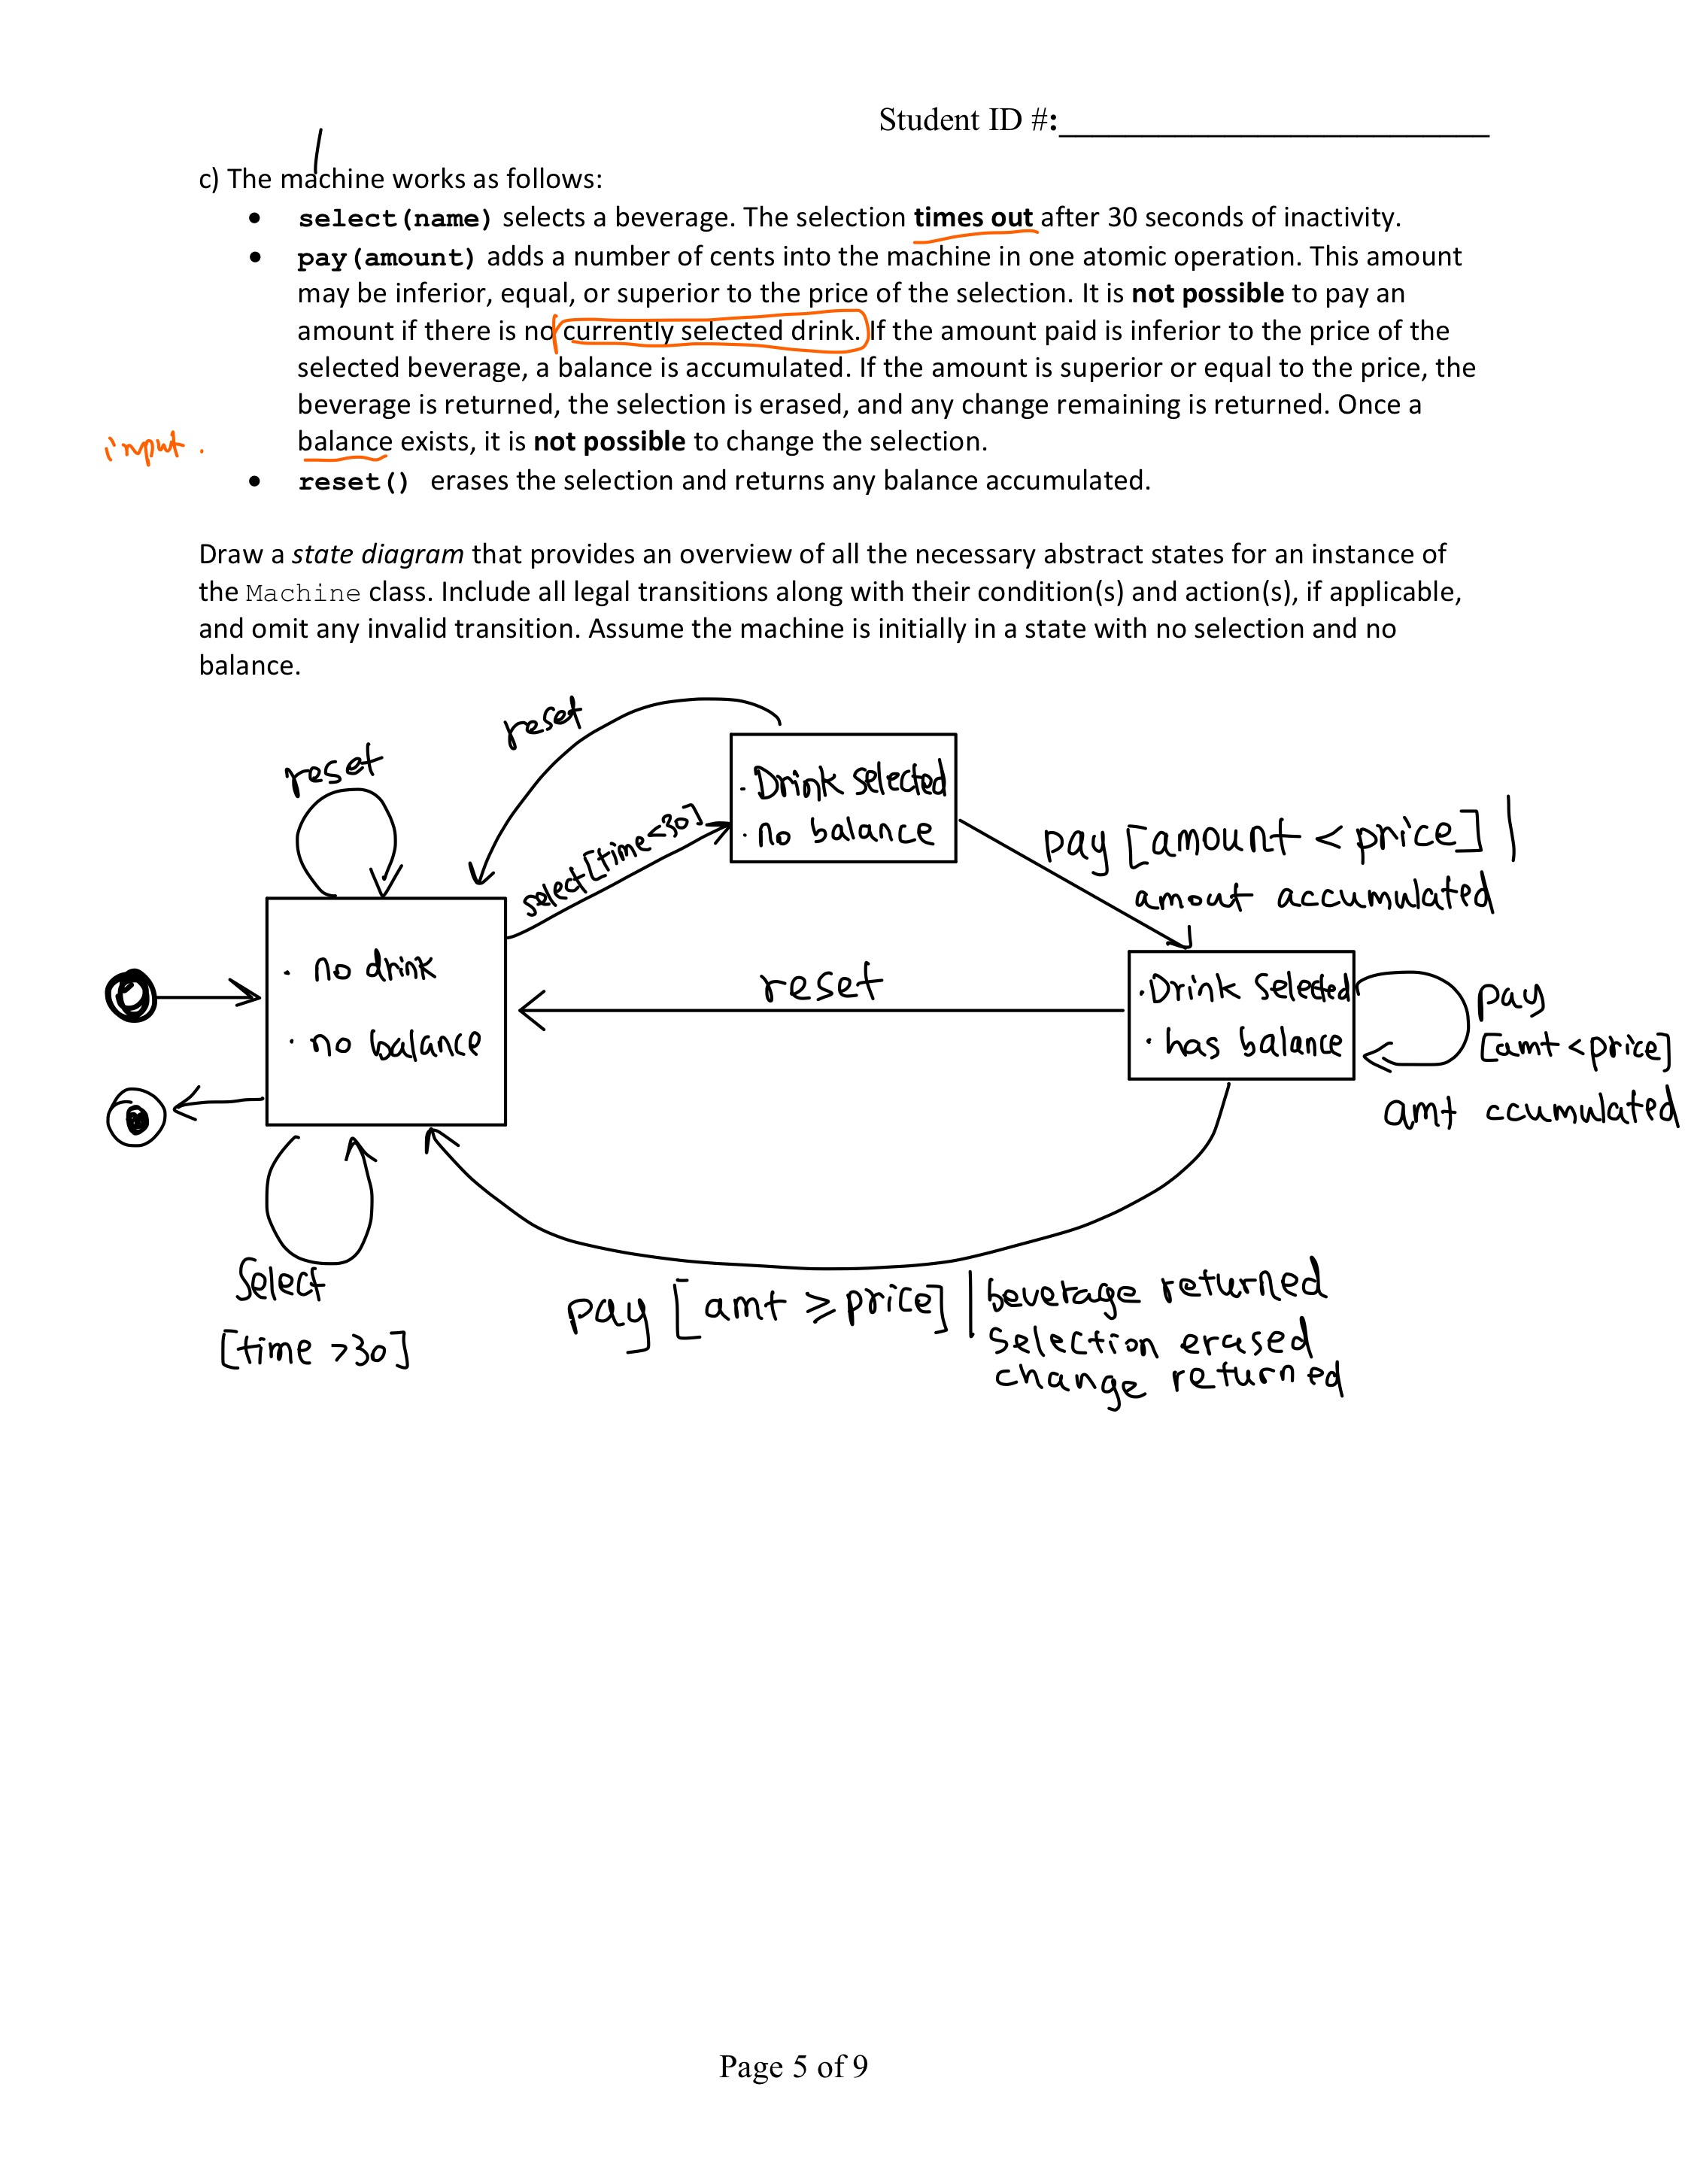 Student ID #:
c) The machine works as follows:
• select(name) selects a beverage. The selection times out after 30 seconds of inactivity.
• pay(amount) adds a number of cents into the machine in one atomic operation. This amount
may be inferior, equal, or superior to the price of the selection. It is not possible to pay an
amount if there is no currently selected drink. If the amount paid is inferior to the price of the
selected beverage, a balance is accumulated. If the amount is superior or equal to the price, the
beverage is returned, the selection is erased, and any change remaining is returned. Once a
input.
balance exists, it is not possible to change the selection.
• reset() erases the selection and returns any balance accumulated.
Draw a state diagram that provides an overview of all the necessary abstract states for an instance of
the Machine class. Include all legal transitions along with their condition(s) and action(s), if applicable,
and omit any invalid transition. Assume the machine is initially in a state with no selection and no
balance.
reset
reset
· Drink selected
· no balance
select[time<30]
pay [amount < price] |
amout accumulated
· no drink
· no balance
reset
· Drink selected
· has balance
pay
[amt < price]
amt ccumulated
Select
[time >30]
pay [amt ⩾ price] | beverage returned
selection erased
change returned
Page 5 of 9